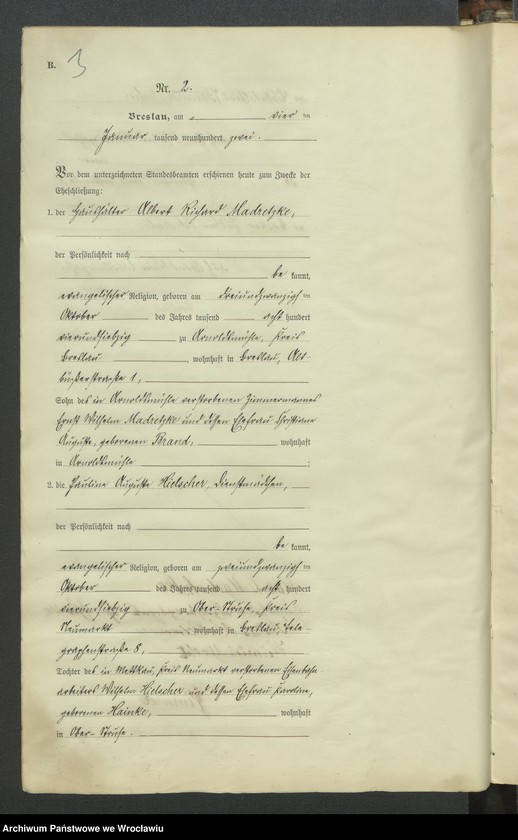 B. 3
Nr. 2.
Breslau, am vier ten
Januar tausend neunhundert zwei.
Vor dem unterzeichneten Standesbeamten erschienen heute zum Zwecke der
Eheschließung:
1. der Haushälter Albert Richard Madretzke,
der Persönlichkeit nach
be kannt,
evangelischer Religion, geboren am dreiundzwanzigsten
Oktober des Jahres tausend acht hundert
vierundsiebzig zu Arnoldsmühle, Kreis
Breslau, wohnhaft in Breslau, Alt-
büßerstraße 1,
Sohn des in Arnoldsmühle verstorbenen Zimmermannes
Ernst Wilhelm Madretzke und dessen Ehefrau Christiane
Auguste, geborenen Brand, wohnhaft
in Arnoldsmühle;
2. die Pauline Auguste Hielscher, Dienstmädchen,
der Persönlichkeit nach
be kannt,
evangelischer Religion, geboren am zweiundzwanzigsten
Oktober des Jahres tausend acht hundert
vierundsiebzig zu Ober-Struse, Kreis
Neumarkt, wohnhaft in Breslau, Tele
graphenstraße 8,
Tochter des in Mettkau, Kreis Neumarkt verstorbenen Eisenbahn
arbeiters Wilhelm Hielscher und dessen Ehefrau Karoline,
geborenen Hainke, wohnhaft
in Ober-Struse.
Archiwum Państwowe we Wrocławiu